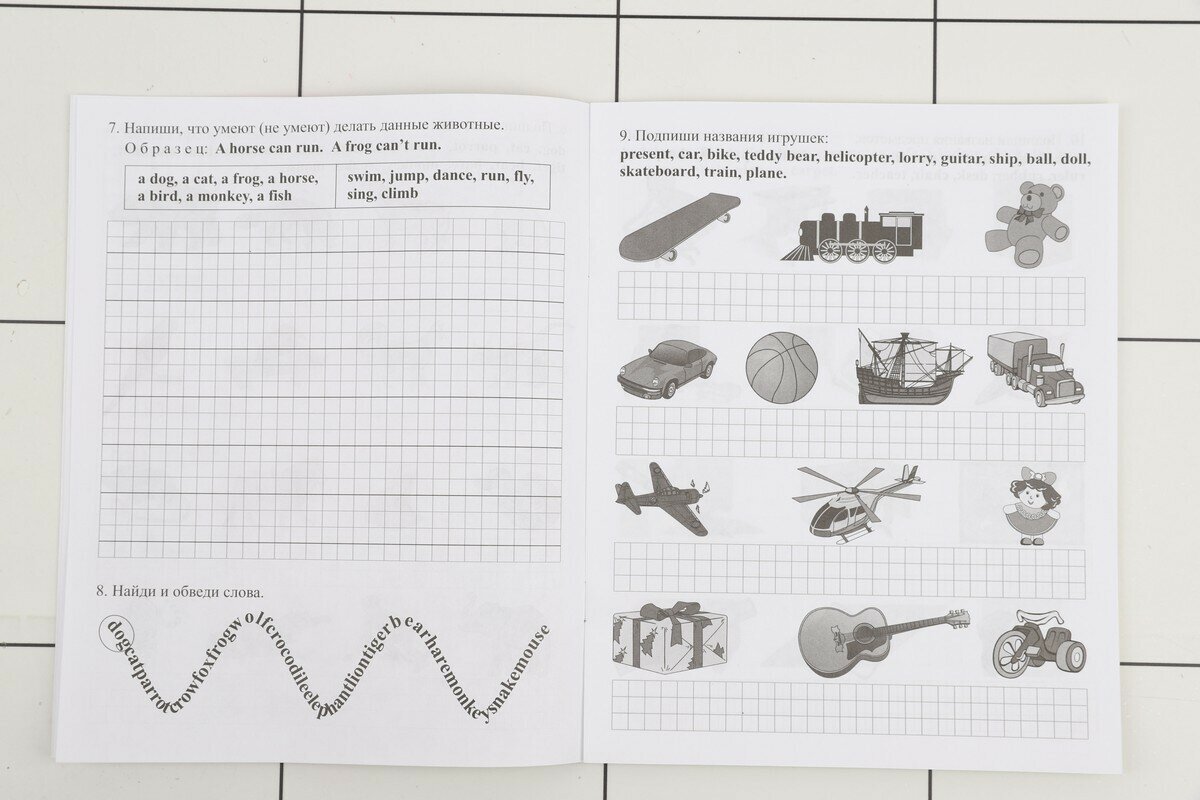 7. Напиши, что умеют (не умеют) делать данные животные.
О б р а з е ц: A horse can run. A frog can't run.
a dog, a cat, a frog, a horse,
a bird, a monkey, a fish
swim, jump, dance, run, fly,
sing, climb
8. Найди и обведи слова.
dogcatparrotcrowfoxfrogwolfcrocodileelephantliontigerbearharemonkeysnakemouse
9. Подпиши названия игрушек:
present, car, bike, teddy bear, helicopter, lorry, guitar, ship, ball, doll,
skateboard, train, plane.